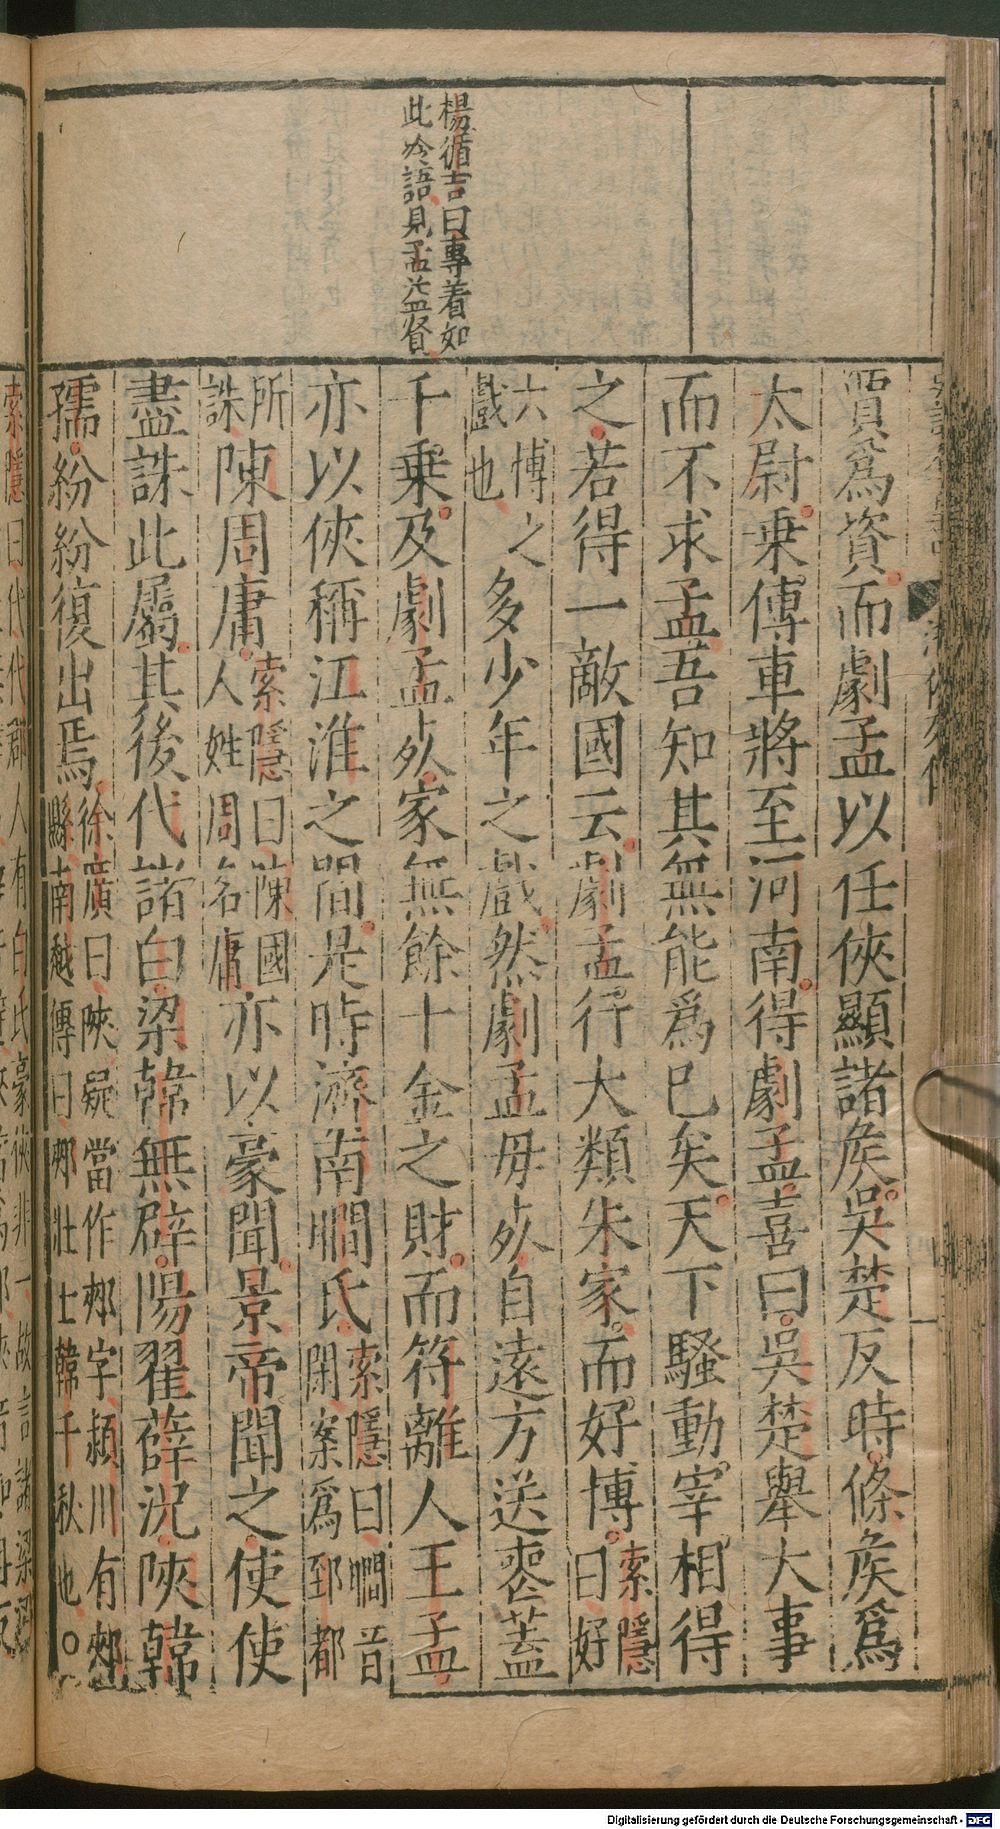 楊循吉曰專着如
此冷語見孟益賢
賈爲資而劇孟以任俠顯諸矦吳楚反時條矦爲
太尉乗傳車將至河南得劇孟喜曰吳楚舉大事
而不求孟吾知其無能爲已矣天下騷動宰相得
之若得一敵國云劇孟行大類朱家而好博索隱曰好
六博之戲也多少年之戲然劇孟母死自遠方送喪蓋
千乗及劇孟死家無餘十金之財而符離人王孟
亦以俠稱江淮之間是時濟南瞷氏索隱曰瞷音閑案爲郅都
所誅陳周庸索隱曰陳國人姓周名庸亦以豪聞景帝聞之使使
盡誅此屬其後代諸白梁韓無辟陽翟薛況陜韓
孺紛紛復出焉徐廣曰陜疑當作郟字潁川有郟縣南越傳曰郟壯士韓千秋也○
索隱曰代代郡人有白氏豪俠非一故言諸梁梁
Digitalisierung gefördert durch die Deutsche Forschungsgemeinschaft - DFG